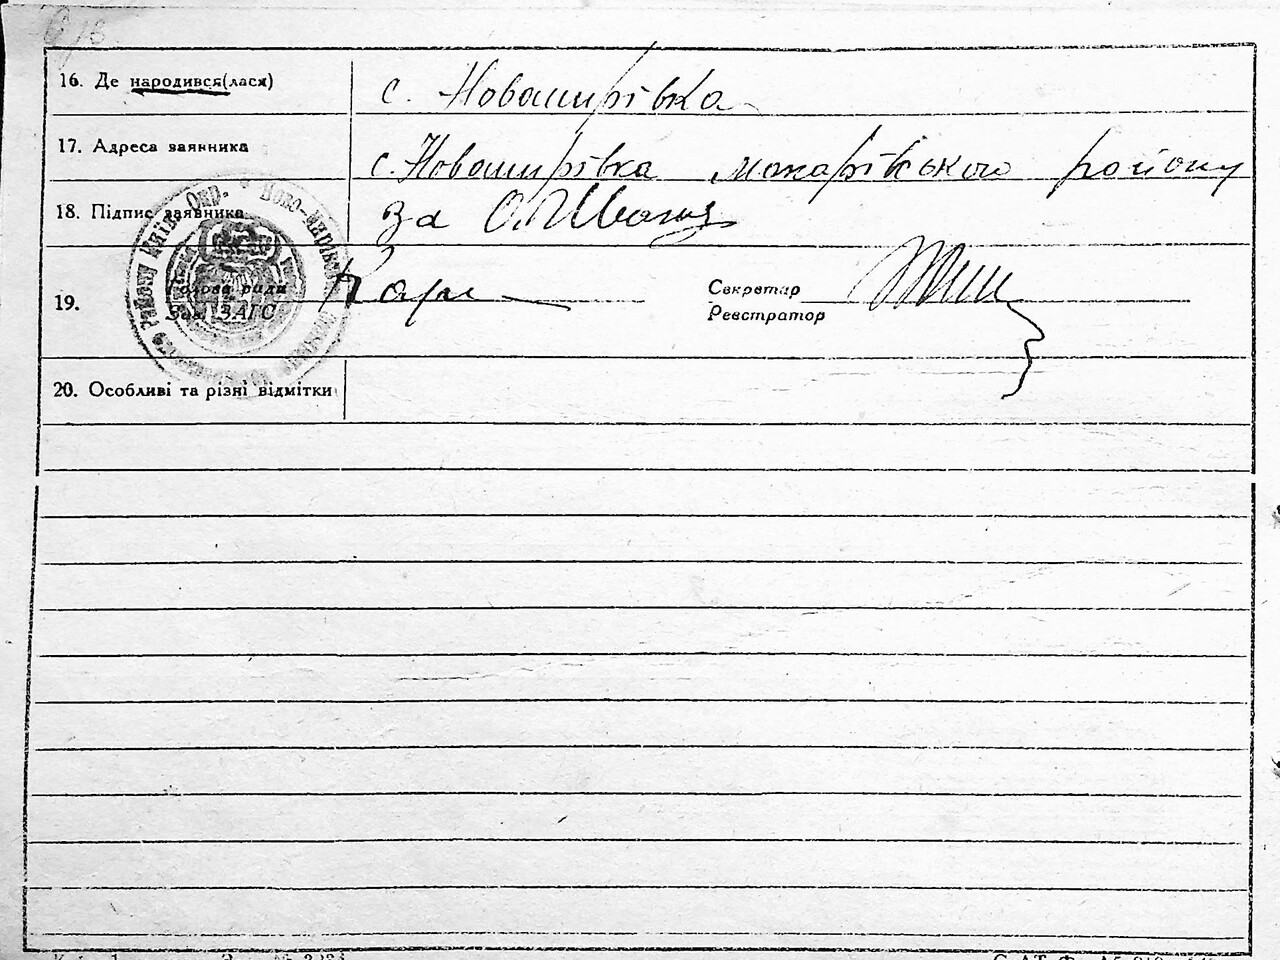 16. Де народився(лася)
с. Новомирівка
17. Адреса заявника
с. Новомирівка макарівського району
18. Підпис заявника
за
19.
Голова ради
Зав. ЗАГС
Секретар
Реєстратор
20. Особливі та різні відмітки